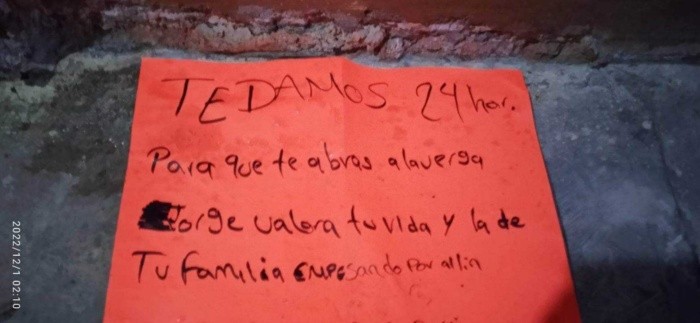 TEDAMOS 24 hor.
Para que te abras alaverga
Jorge valora tu vida y la de
Tu familia empesando por allin
2022/12/1 02:10